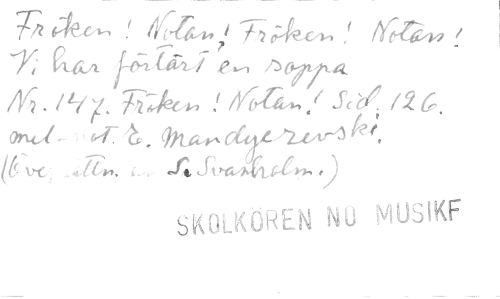 Fröken! Notan! Fröken! Notan!
Vi har förtärt en soppa
Nr. 147. Fröken! Notan! Sid. 126.
mel. E. Mandyczevski.
S. Svanholm.)
SKOLKÖREN NO MUSIKF